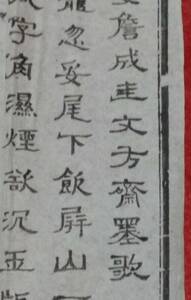 詹成圭文方齋墨歌
龍忽妥尾下飲屏山
字角濕煙欲沉玉版